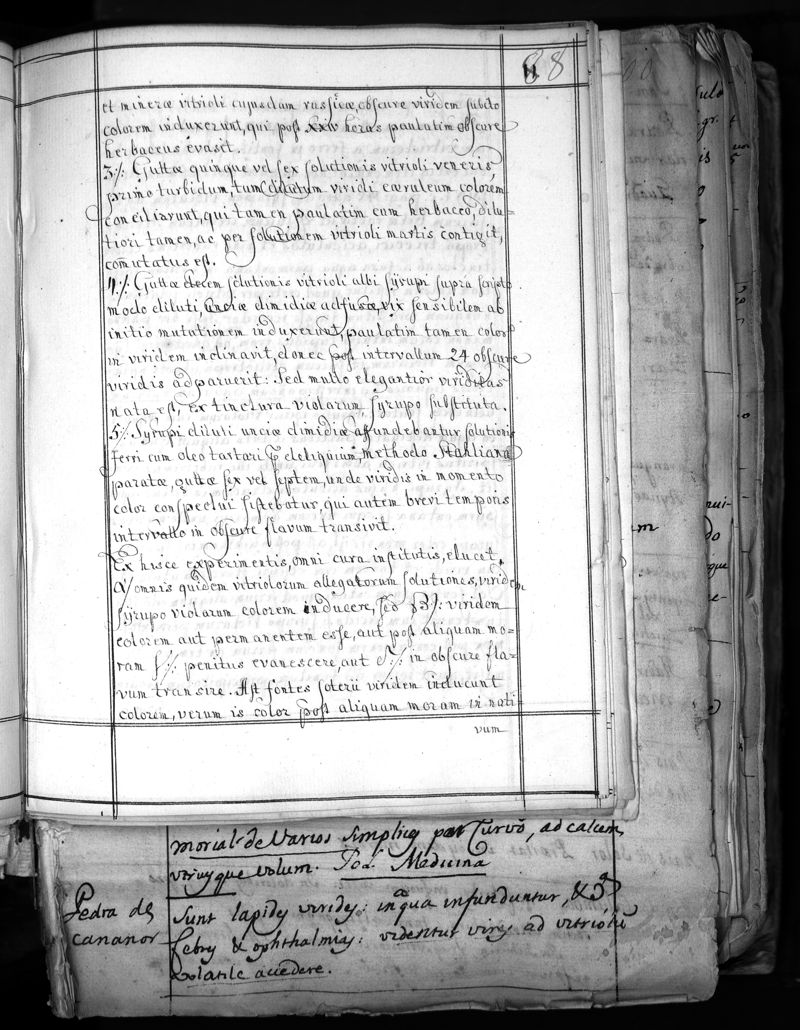 88
et mineræ vitrioli cujusdam russicæ, obscure viridem subito
colorem induxerunt, qui post xxiv horas paulatim obscure
herbaceus evasit.
3:/. Guttæ quinque vel sex solutionis vitrioli veneris,
primo turbidum, tum viridi cæruleum colorem
conciliarunt, qui tamen paulatim cum herbaceo, dilu=
tiori tamen, ac per solutionem vitrioli martis contigit,
com̃utatus est.
4:/. Guttæ decem solutionis vitrioli albi syrupi supra scripto
modo diluti, unciæ dimidiæ adfusæ, vix sensibilem ab
initio mutationem induxerunt, paulatim tamen color
in viridem inclinavit, donec post intervallum 24 obscure
viridis adparuerit: Sed multo elegantior viriditas
nata est, ex tinctura violarum, syrupo substituta.
5:/. Syrupi diluti unciæ dimidiæ affundebantur solutionis
ferri cum oleo tartari deliquium, methodo Stahliana
paratæ, guttæ sex vel septem, unde viridis in momento
color conspectui sistebatur, qui autem brevi temporis
intervallo in obscure flavum transivit.
Ex hisce experimentis, omni cura institutis, elucet,
omnis quidem vitriolorum allegatorum solutiones, viridem
syrupo violarum colorem inducere, sed viridem
colorem aut permanentem esse, aut post aliquam mo=
ram penitus evanescere, aut 5:/. in obscure fla=
vum transire. Ast fontes soterii viridem inducunt
colorem, verum is color post aliquam moram in nati
vum
morial de Varios Simplices Curvo, ad calcem
utriusque volum. Pol. Medicina
Pedra de
cananor
Sunt lapides virides: in aqua infunduntur, &
febres & ophthalmias: videntur vires ad vitriolũ
volatile accedere.